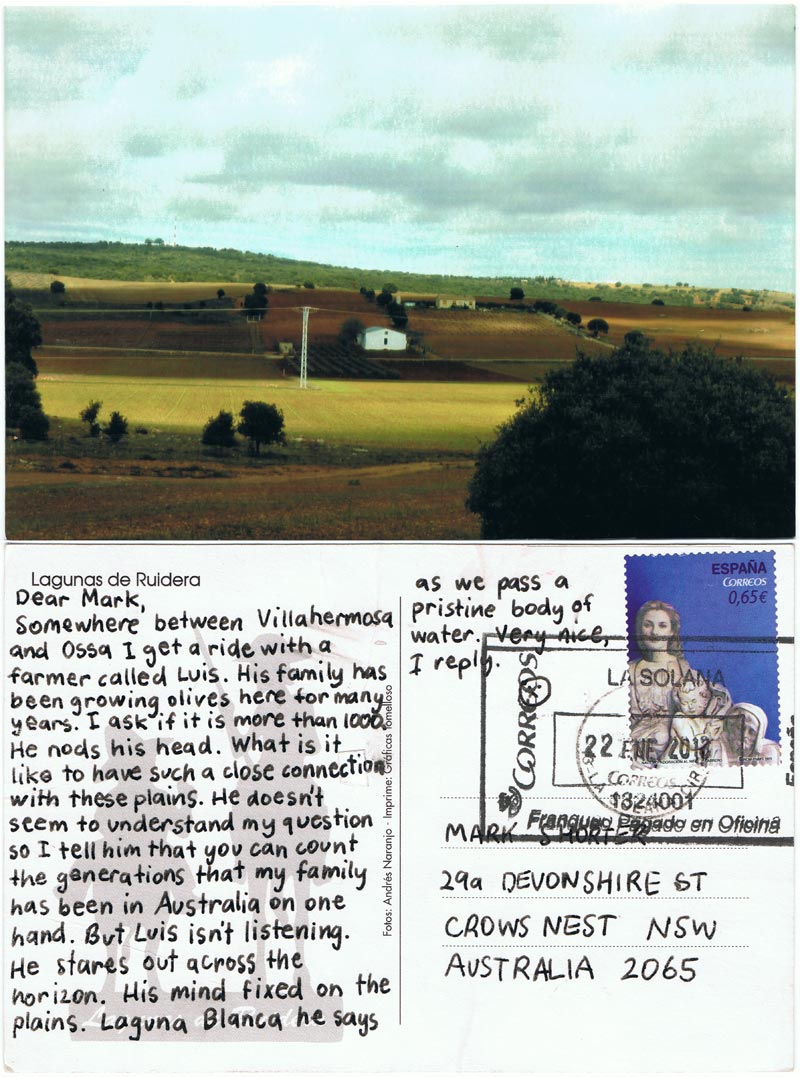 Lagunas de Ruidera
Dear Mark,
Somewhere between Villahermosa
and Ossa I get a ride with a
farmer called Luis. His family has
been growing olives here for many
years. I ask if it is more than 1000.
He nods his head. What is it
like to have such a close connection
with these plains. He doesn't
seem to understand my question
so I tell him that you can count
the generations that my family
has been in Australia on one
hand. But Luis isn't listening.
He stares out across the
horizon. His mind fixed on the
plains. Laguna Blanca he says
as we pass a
pristine body of
water. Very nice,
I reply.
Fotos: Andrés Naranjo - Imprime: Gráficas Tomelloso
ESPAÑA
CORREOS
0,65€
LA SOLANA
CORREOS
22 ENE
CORREOS
1324001
Franqueo Pagado en Oficina
España
MARK SHORTER
29a DEVONSHIRE ST
CROWS NEST NSW
AUSTRALIA 2065